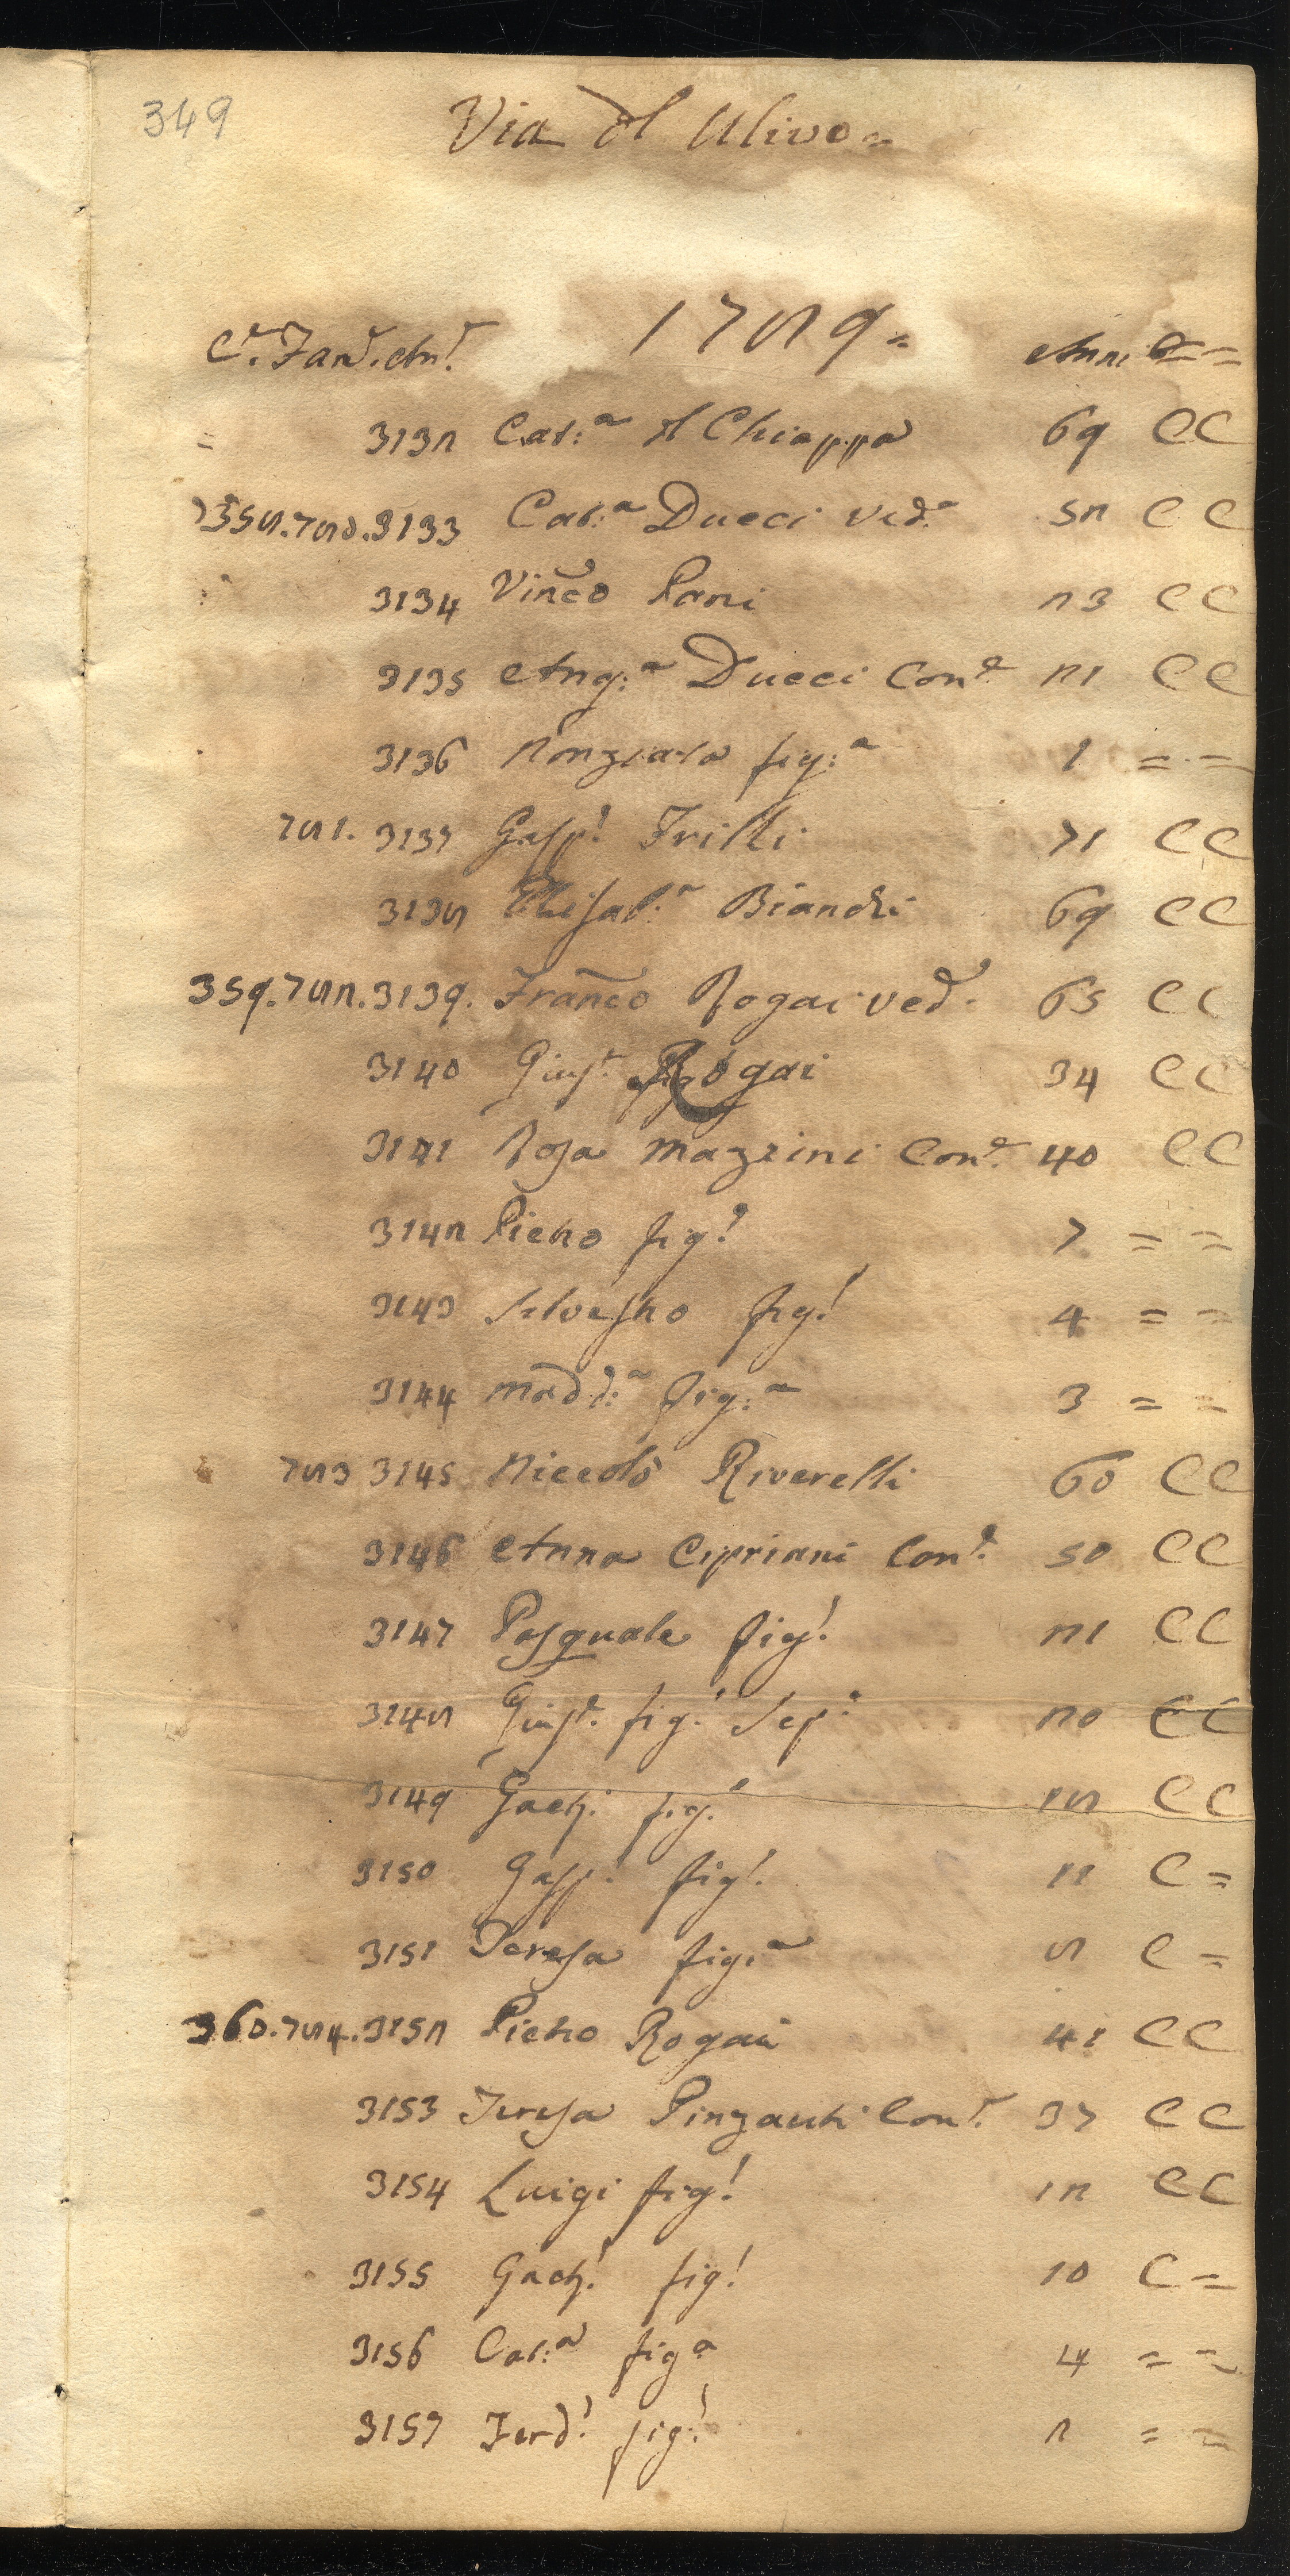 349
Via dl Ulivo =
1789 =
Ce. Fame. Ane. Anni C = =
= 3132 Cat:a dl Chiappa 69 C C
358. 780. 3133 Cat:a Ducci Ved:a 52 C C
3134 Vinco Pani 23 C C
3135 Ang:a Ducci Cone 21 C C
3136 Nonziata fig:a 1 = =
781. 3137 Gasp! Frilli 71 C C
3138 Elisab:a Bianchi 69 C C
359. 782. 3139. Franco Rogai Ved:o 65 C C
3140 Giuse Rogai 34 C C
3141 Rosa Mazzini Cone 40 C C
3142 Pietro fig! 7 = =
3143 Silvestro fig! 4 = =
3144 Madd:a fig:a 3 = =
783 3145 Niccolò Riverelli 60 C C
3146 Anna Cipriani Cone 50 C C
3147 Pasquale fig! 21 C C
3148 Giuse fig! Sep:e 20 C C
3149 Gaet! fig! 18 C C
3150 Gasp! fig! 11 C =
3151 Teresa fig:a 8 C =
360. 784. 3152 Pietro Rogai 41 C C
3153 Teresa Pinzauti Cone 37 C C
3154 Luigi fig! 12 C C
3155 Gaet! fig! 10 C =
3156 Cat:a fig:a 4 = =
3157 Ferd! fig! 2 = =